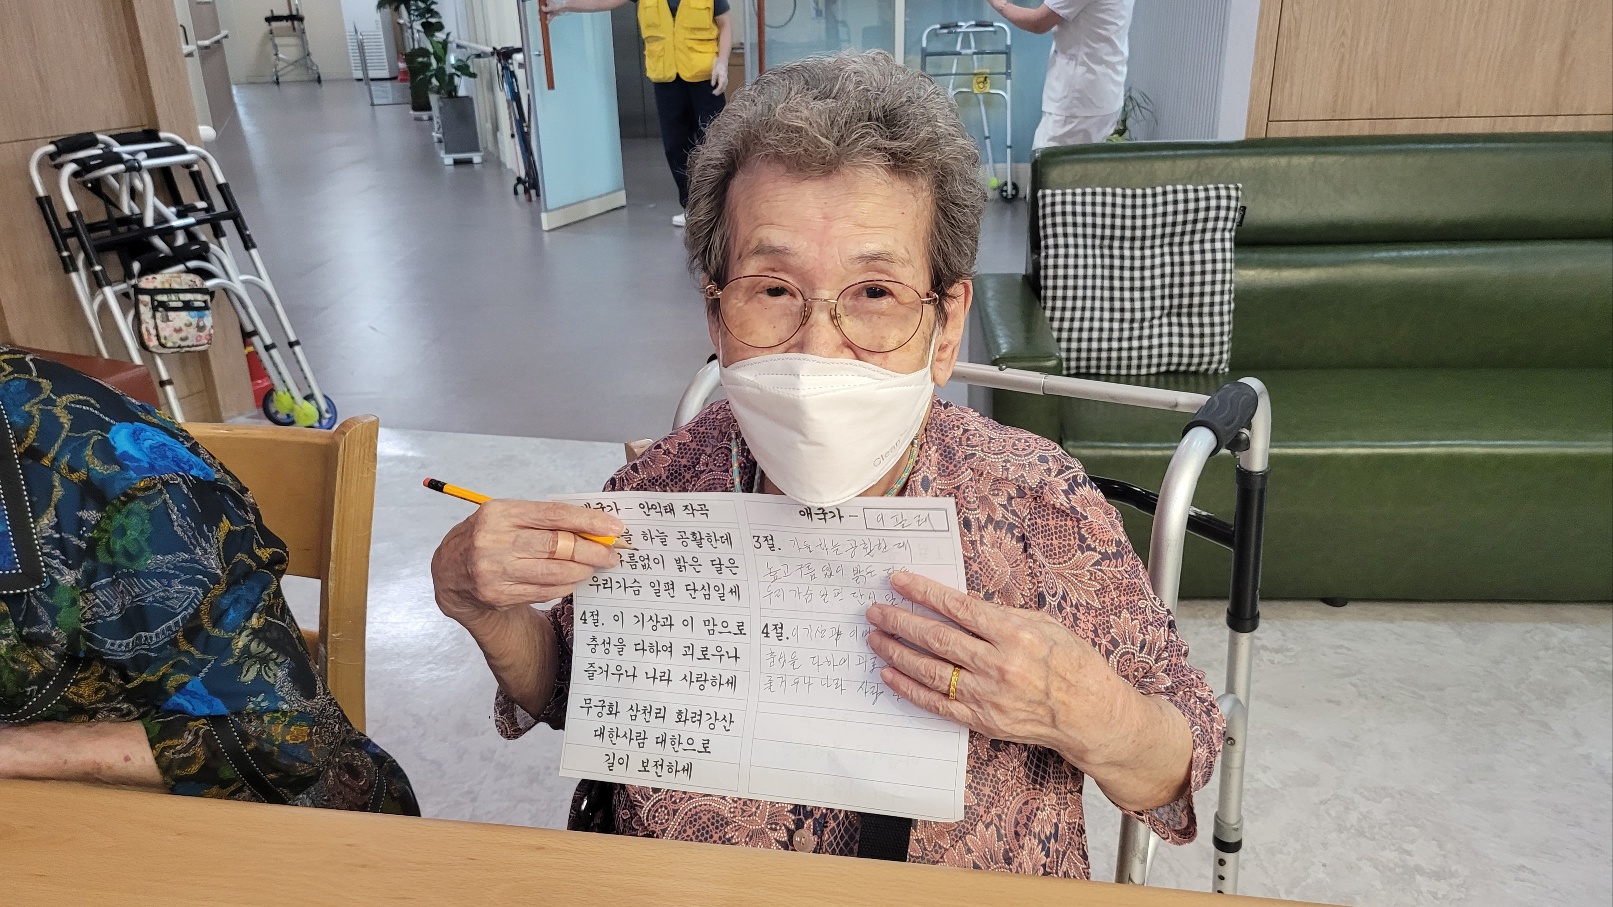 애국가 - 안익태 작곡
을 하늘 공활한데
구름없이 밝은 달은
우리가슴 일편 단심일세
4절. 이 기상과 이 맘으로
충성을 다하여 괴로우나
즐거우나 나라 사랑하세
무궁화 삼천리 화려강산
대한사람 대한으로
길이 보전하세
애국가 - 이팔례
3절. 가을하늘 공활한데
높고 구름 없이 밝은 달은
우리 가슴 일편 단심
4절. 이 기상과 이
충성을 다하여 괴로
즐거우나 나라 사랑
Clean